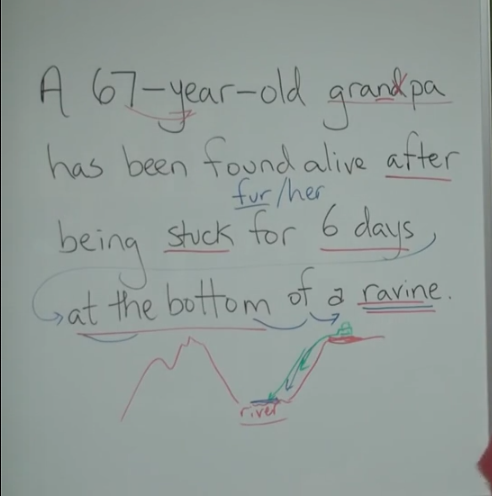 A 67-year-old grandpa
has been found alive after
fur/her
being stuck for 6 days,
at the bottom of a ravine.
river